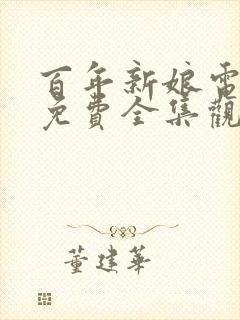 百年新娘電
免費全集觀
董建華